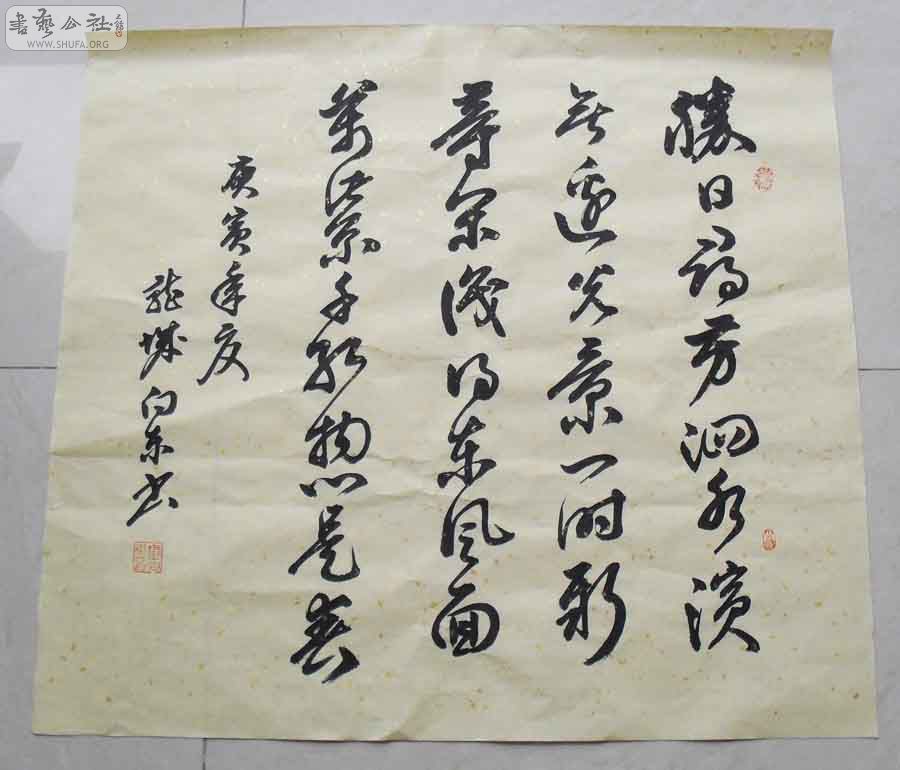 書藝公社
WWW.SHUFA.ORG
勝日尋芳泗水濱
無邊光景一時新
等閑識得東風面
萬紫千紅總是春
庚寅年夏
龍城向東书